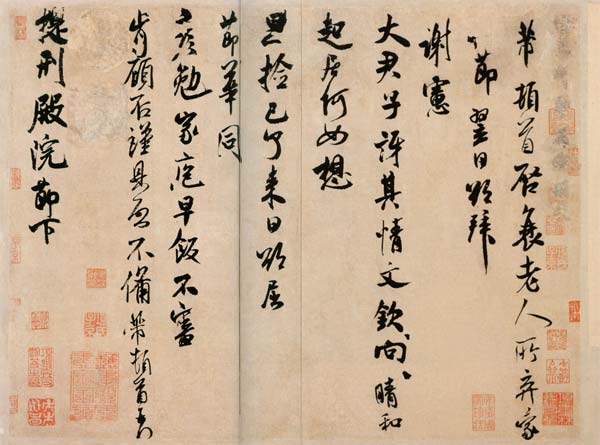 芾頓首啓衰老人所弃蒙
節翌日欲拜
謝憲
大君子訝其情文欽向欽向晴和
起居何如想
撿已了來日欲屈
節華同
勉家庖早飯不審
肯顧否謹具咨不備芾頓首
提刑殿院節下